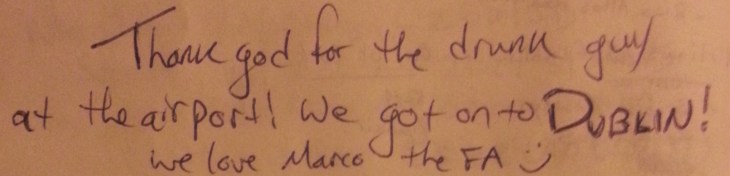 Thank god for the drunk guy
at the airport! We got on to DUBLIN!
we love Marco the FA :)